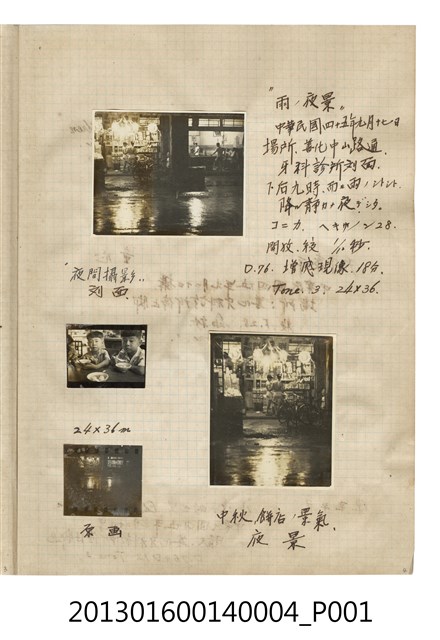 "雨ノ夜景"
中華民國四十五年九月十七日
場所、善化中山路通
牙科診所対面
下后九時、雨
降ル静カナ夜
コニカ、ヘキサノン28.
開放、絞 1/10秒.
D.76. 増感現像.18分.
Tone. 3. 24×36.
"夜間攝影"
対面
24×36 m
原画
中秋、餅店ノ景氣、
夜景
201301600140004_P001